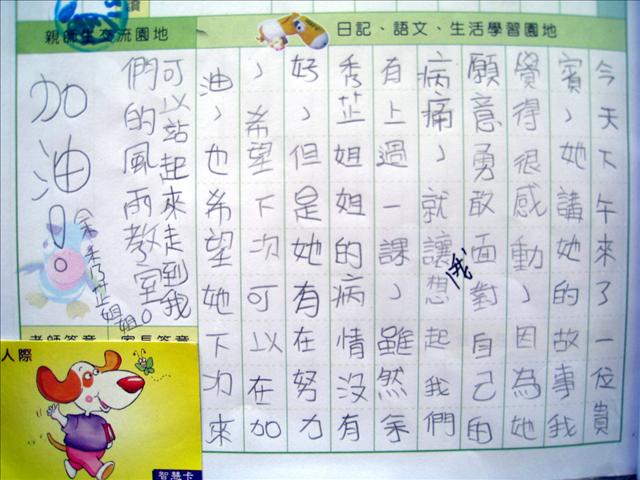 親師生交流園地
日記、語文、生活學習園地
今天下午來了一位貴
賓，她講她的故事我
覺得很感動，因為她
願意勇敢面對自己的
病痛，就讓我想起我們
有上過一課，雖然余
秀芷姐姐的病情沒有
好，但是她有在努力
，希望下次可以在加
油，也希望她下次來
可以站起來走到我
們的風雨教室。
加油！
余秀芷姐姐
人際
智慧卡